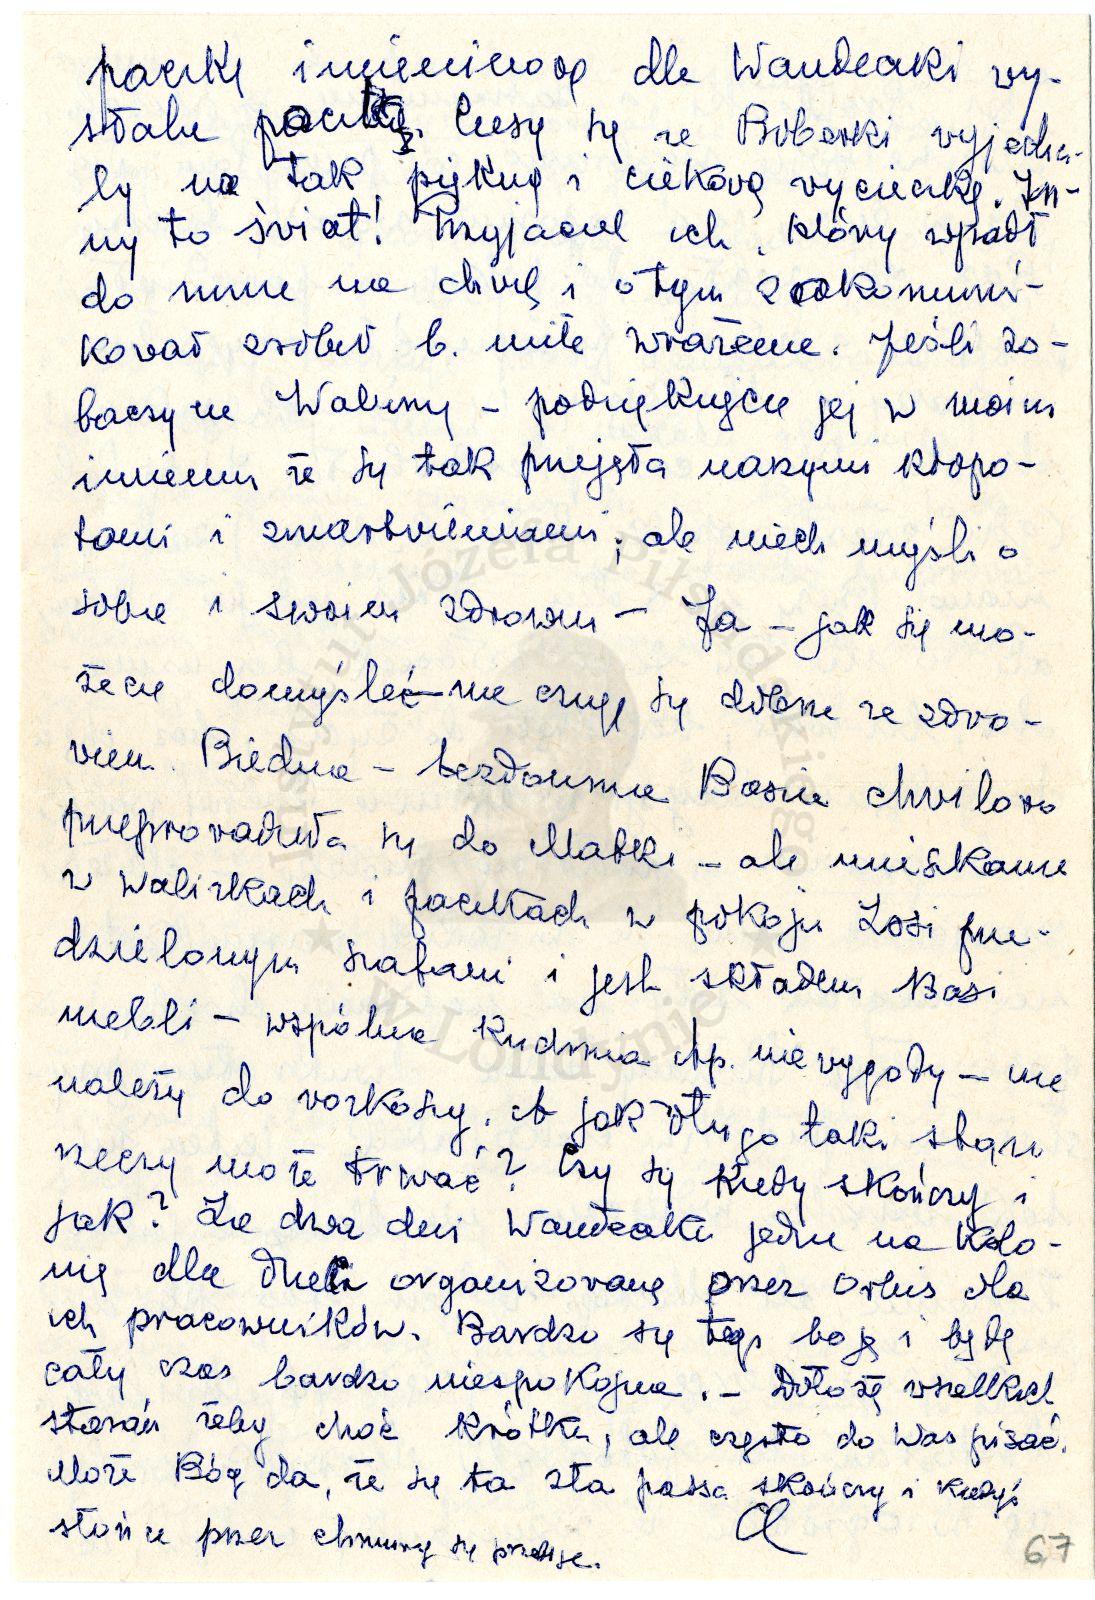 paczkę imieninową dla Wandeczki wy-
słała paczkę. Cieszę się że Boberki wyjecha-
ły na tak piękną i ciekawą wycieczkę. In-
ny to świat! Przyjaciel ich, który wpadł
do mnie na chwilę i o tym zakomuni-
kował zrobił b. miłe wrażenie. Jeśli zo-
baczycie Walerię – podziękujcie jej w moim
imieniu że się tak przejęła naszymi kłopo-
tami i zmartwieniami, ale niech myśli o
sobie i swoim zdrowiu – Ja – jak się mo-
żecie domyśleć – nie czuję się dobrze ze zdro-
wiem. Biedna – bezdomna Basia chwilowo
przeprowadziła się do Matki – ale mieszkanie
w walizkach i paczkach w pokoju Zosi prze-
dzielonym szafami i jest składem Basi
mebli – wspólna kuchnia itp. niewygody – nie
należy do rozkoszy. A jak długo taki stan
rzeczy może trwać? Czy się kiedy skończy i
jak? Za dwa dni Wandeczka jedzie na kolo-
nię dla dzieci organizowaną przez Orbis dla
ich pracowników. Bardzo się tego boję i będę
cały czas bardzo niespokojna. – Dołożę wszelkich
starań żeby choć krótko, ale często do Was pisać.
Może Bóg da, że się ta zła passa skończy i kiedyś
słońce przez chmury się przebije.
67
Instytut Józefa Piłsudskiego
w Londynie